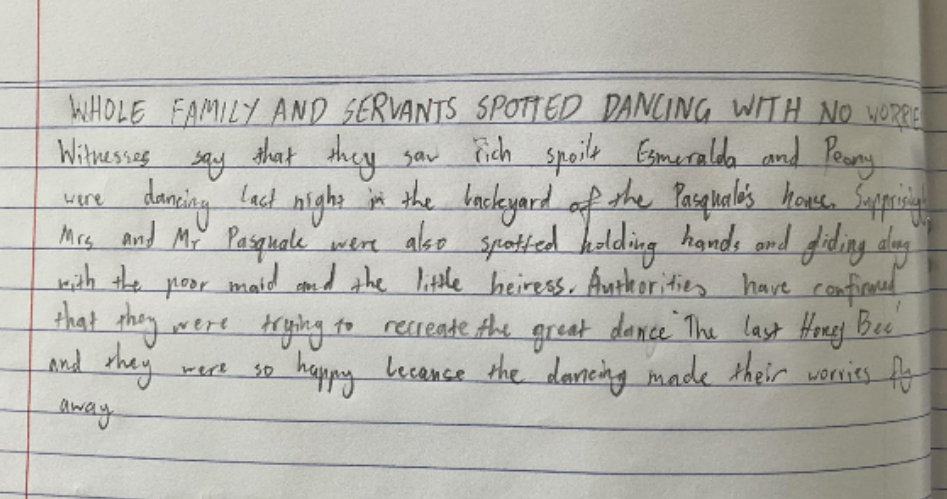 WHOLE FAMILY AND SERVANTS SPOTTED DANCING WITH NO WORRIE
Witnesses say that they saw rich spoilt Esmeralda and Peony
were dancing last night in the backyard of the Pasquale's house. Supprisingly
Mrs and Mr Pasquale were also spotted holding hands and gliding along
with the poor maid and the little heiress. Authorities have confirmed
that they were trying to recreate the great dance "The last Honey Bee"
and they were so happy because the dancing made their worries fly
away